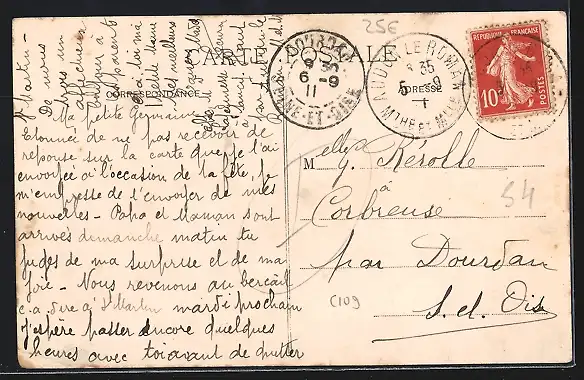 25E
CARTE POSTALE
CORRESPONDANCE
ADRESSE
DOURDAN
8 35
6 - 9
11
SEINE-ET-OISE
AUDUN-LE-ROMAN
8 35
5 - 9
MTHE ET MLLE
10
Ma petite Germaine
Etonnée de ne pas recevoir de
réponse sur la carte que je t'ai
envoyée à l'occasion de ta fête, je
m'empresse de t'envoyer de mes
nouvelles - Papa et Maman sont
arrivés dimanche matin tu
juges de ma surprise et de ma
joie - Nous revenons au bercail
c-a-dire à St Martin mardi prochain
J'espère passer encore quelques
heures avec toi avant de quitter
St Martin -
De nous
trois un
affectueux
bonjour à
tes parents
et à toi ma
petite
meilleurs
Melle G. Kérolle
à
Corbreuse
par Dourdan
S. et Oise
54
C109